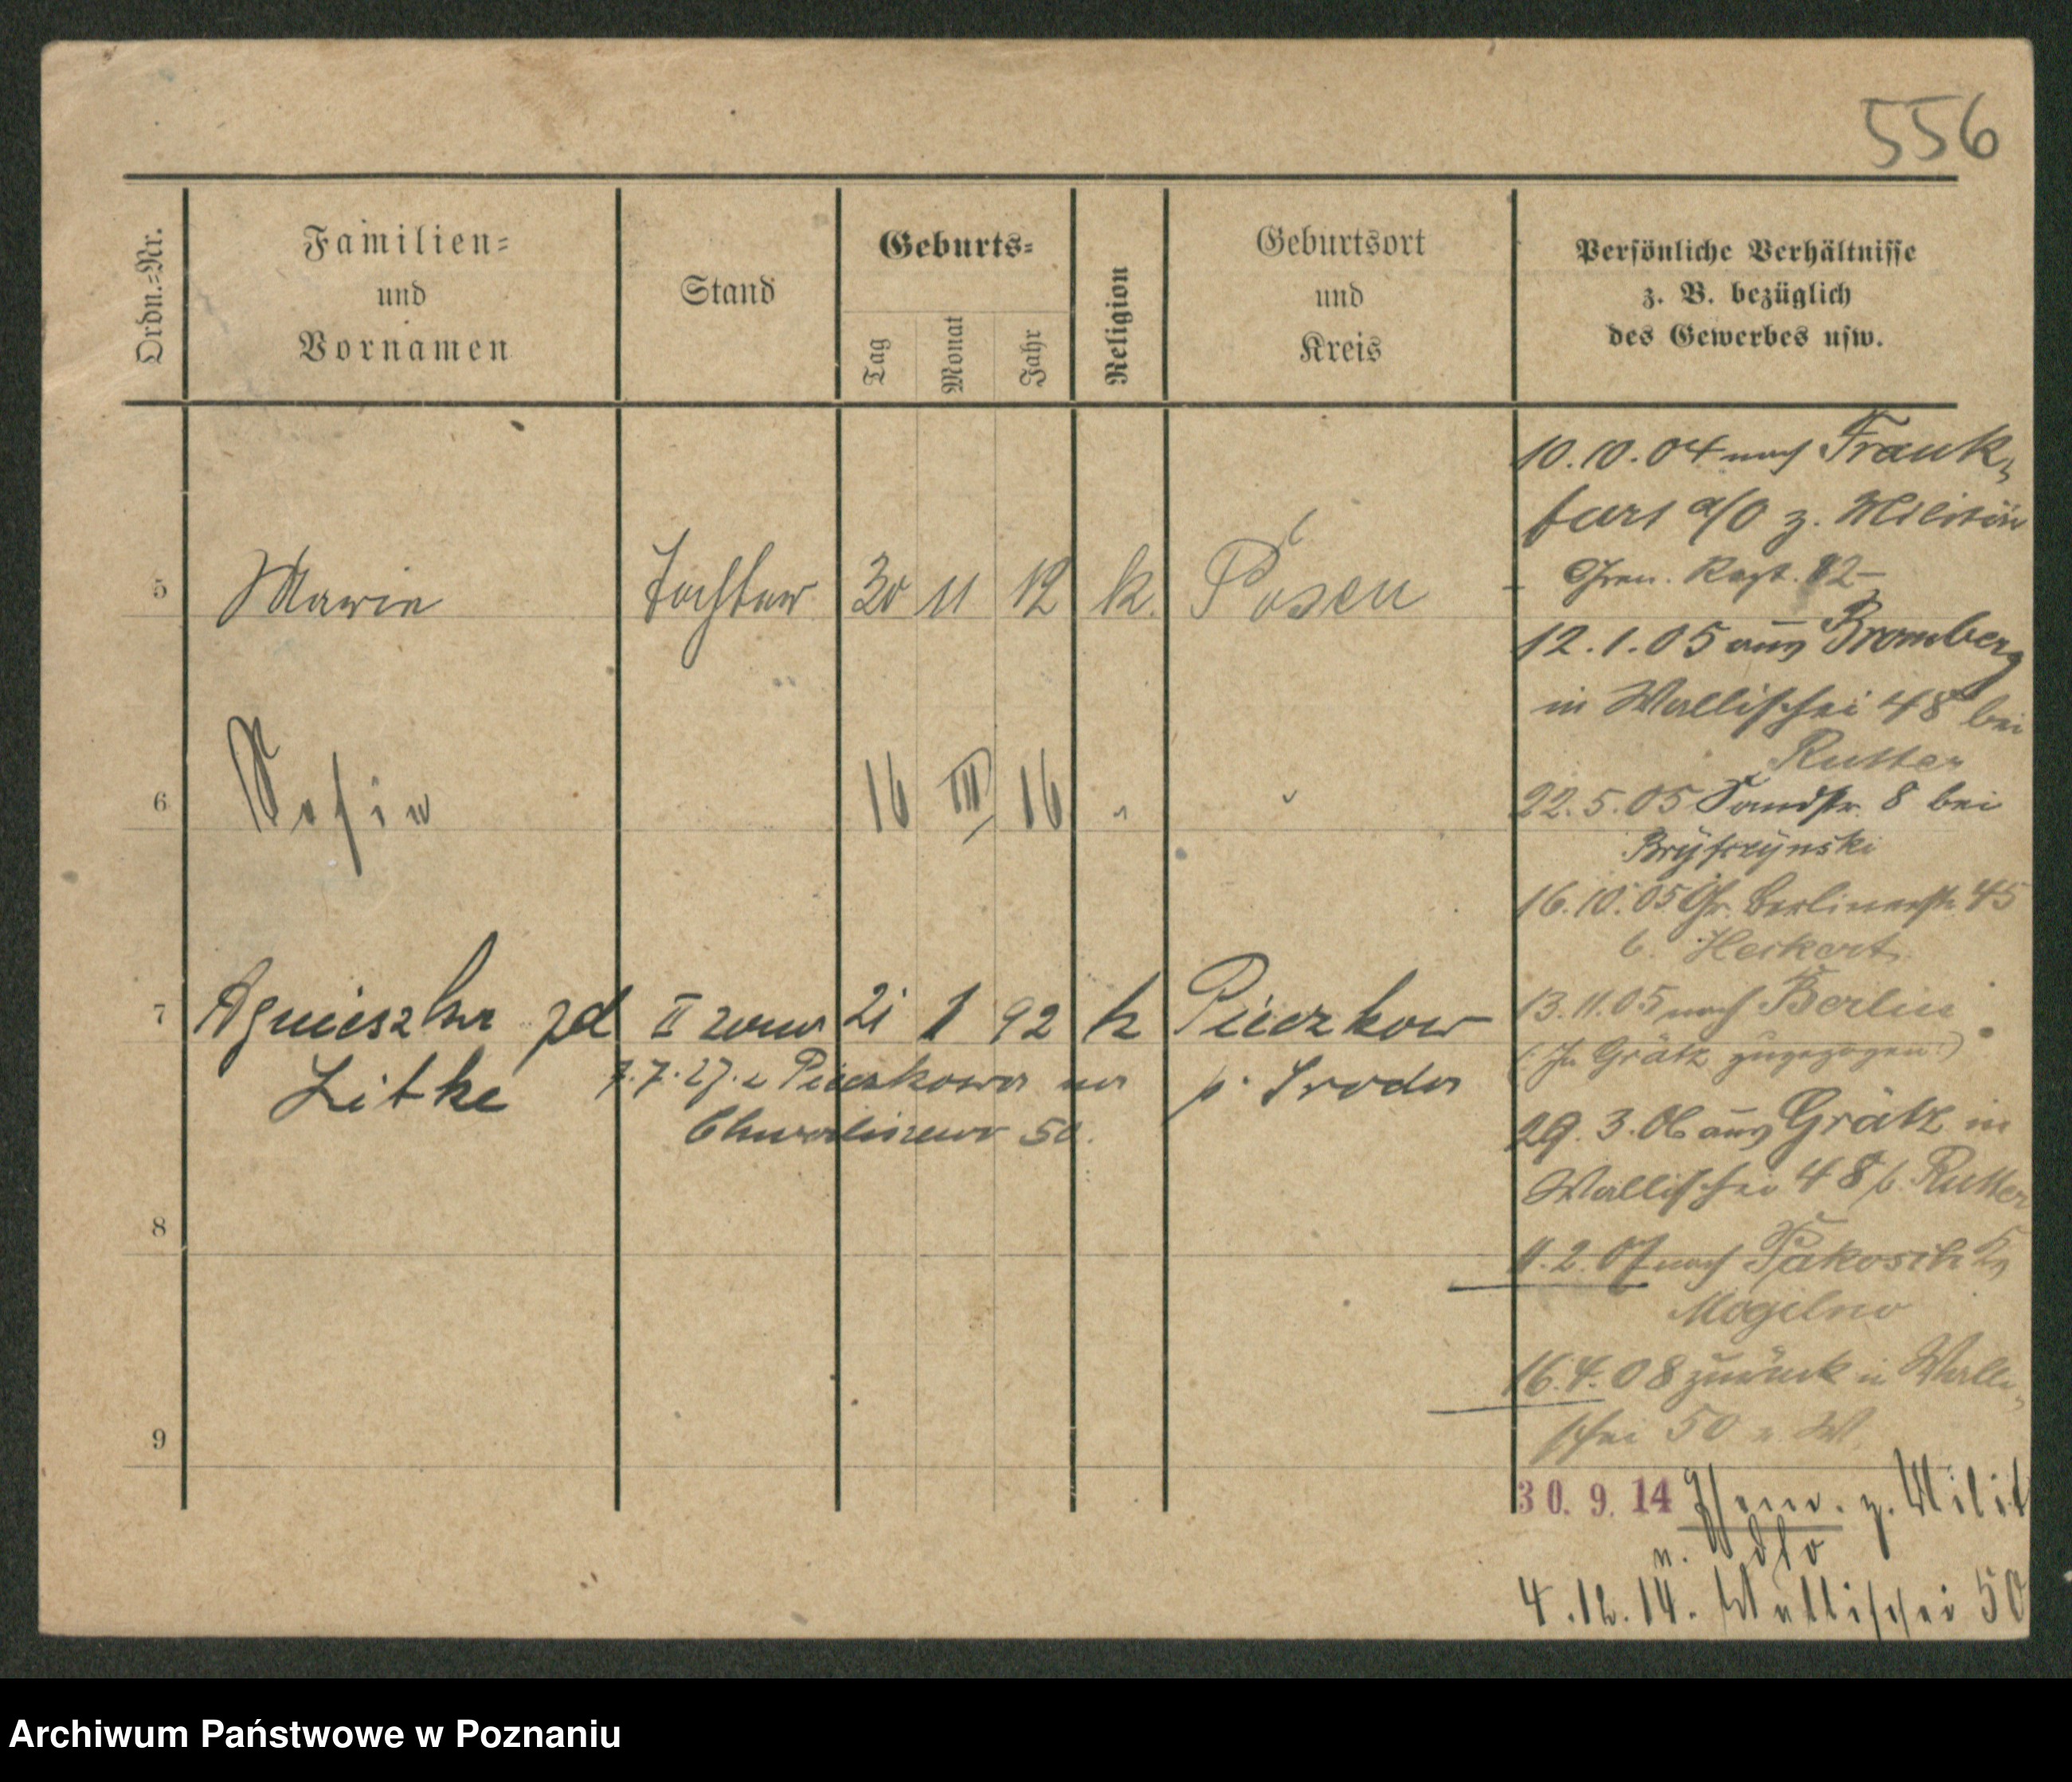 556
Ordn.-Nr.
Familien-
und
Vornamen
Stand
Geburts-
Tag
Monat
Jahr
Religion
Geburtsort
und
Kreis
Persönliche Verhältnisse
z. B. bezüglich
des Gewerbes usw.
5 Marie Tochter 30 11 12 k. Posen
6 Sofie 16 III 16
7 Agnieszka zd II żona 21 1 92 k Pierzkow
Litke 7.7.27. z Pierzkowa na p. Środa
Chwaliszewo 50.
8
9
10.10.04 nach Frank-
furt a/O z. Militär
- Gren. Regt. 12 -
12.1.05 aus Bromberg
in Wallischei 48 bei
Rutter
22.5.05 Sandstr. 8 bei
16.10.05 Gr. Berlinerstr. 45
b. Heckert
13.11.05 nach Berlin
(: In Grätz zugezogen :)
29.3.06 aus Grätz in
Wallischei 48 b. Rutter
11.2.07 nach Pakosch Kr.
Mogilno
16.4.08 zurück in Walli-
schei 50 b. W.
30. 9. 14 z. Milit
4.12.14. Wallischei 50
Archiwum Państwowe w Poznaniu